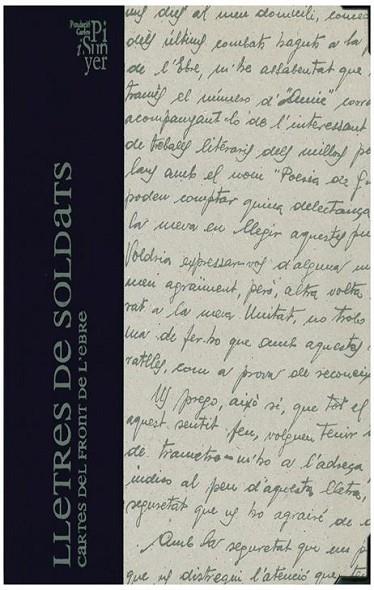 Fundació
Carles
Pi
i Sunyer
LLETRES DE SOLDATS
CARTES DEL FRONT DE L'EBRE
ung dies al meu domicili,
dels últims combats haguts a la
de l'Ebre, m'he assabentat que
tramès el número d'"Amic"
acompanyant-lo de l'interessant
de treballs literaris dels millors
lans amb el nom "Poesia de
poden comptar quina delectança
la meva en llegir aquestes
Voldria expressar-vos d'alguna
meu agraïment, però, altra volta
rat a la meva Unitat, no trobo
ma de fer-ho que amb aquestes
ratlles, com a prova de
Us prego, això sí, que tot el
aquest sentit feu, vulgueu tenir
de trametre-m'ho a l'adreça
indico al peu d'aquesta lletra,
seguretat que us ho agrairé de
Amb la seguretat que em
que us distregui l'atenció que